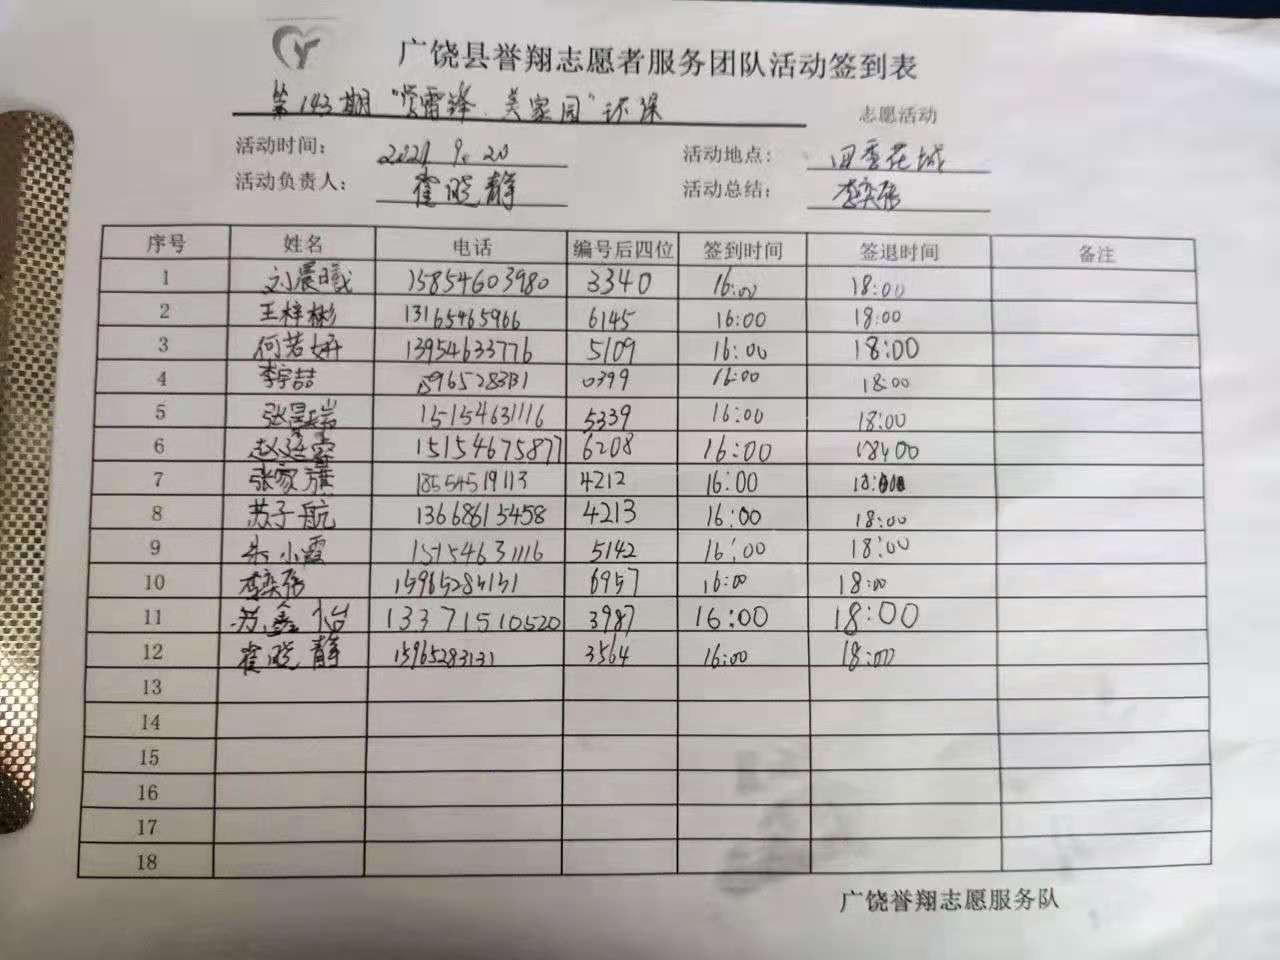 广饶县誉翔志愿者服务团队活动签到表
第143期 "学雷锋、美家园"环保 志愿活动
活动时间： 2021 9.20 活动地点： 四季花城
活动负责人： 霍晓静 活动总结： 李奕璐
序号 姓名 电话 编号后四位 签到时间 签退时间 备注
1 刘晨曦 15854603980 3340 16:00 18:00
2 王梓彬 13165465966 6145 16:00 18:00
3 何若妍 13954633776 5109 16:00 18:00
4 李宇喆 0399 16:00 18:00
5 张昊瑞 15154631116 5339 16:00 18:00
6 15154675877 6208 16:00
7 张家骥 18554519113 4212 16:00
8 苏子航 13668615458 4213 16:00 18:00
9 朱小霞 15154631116 5142 16:00 18:00
10 15965283131 6957 16:00 18:00
11 苏鑫怡 13371510520 3987 16:00 18:00
12 霍晓静 15965283131 3564 16:00 18:00
13
14
15
16
17
18
广饶誉翔志愿服务队